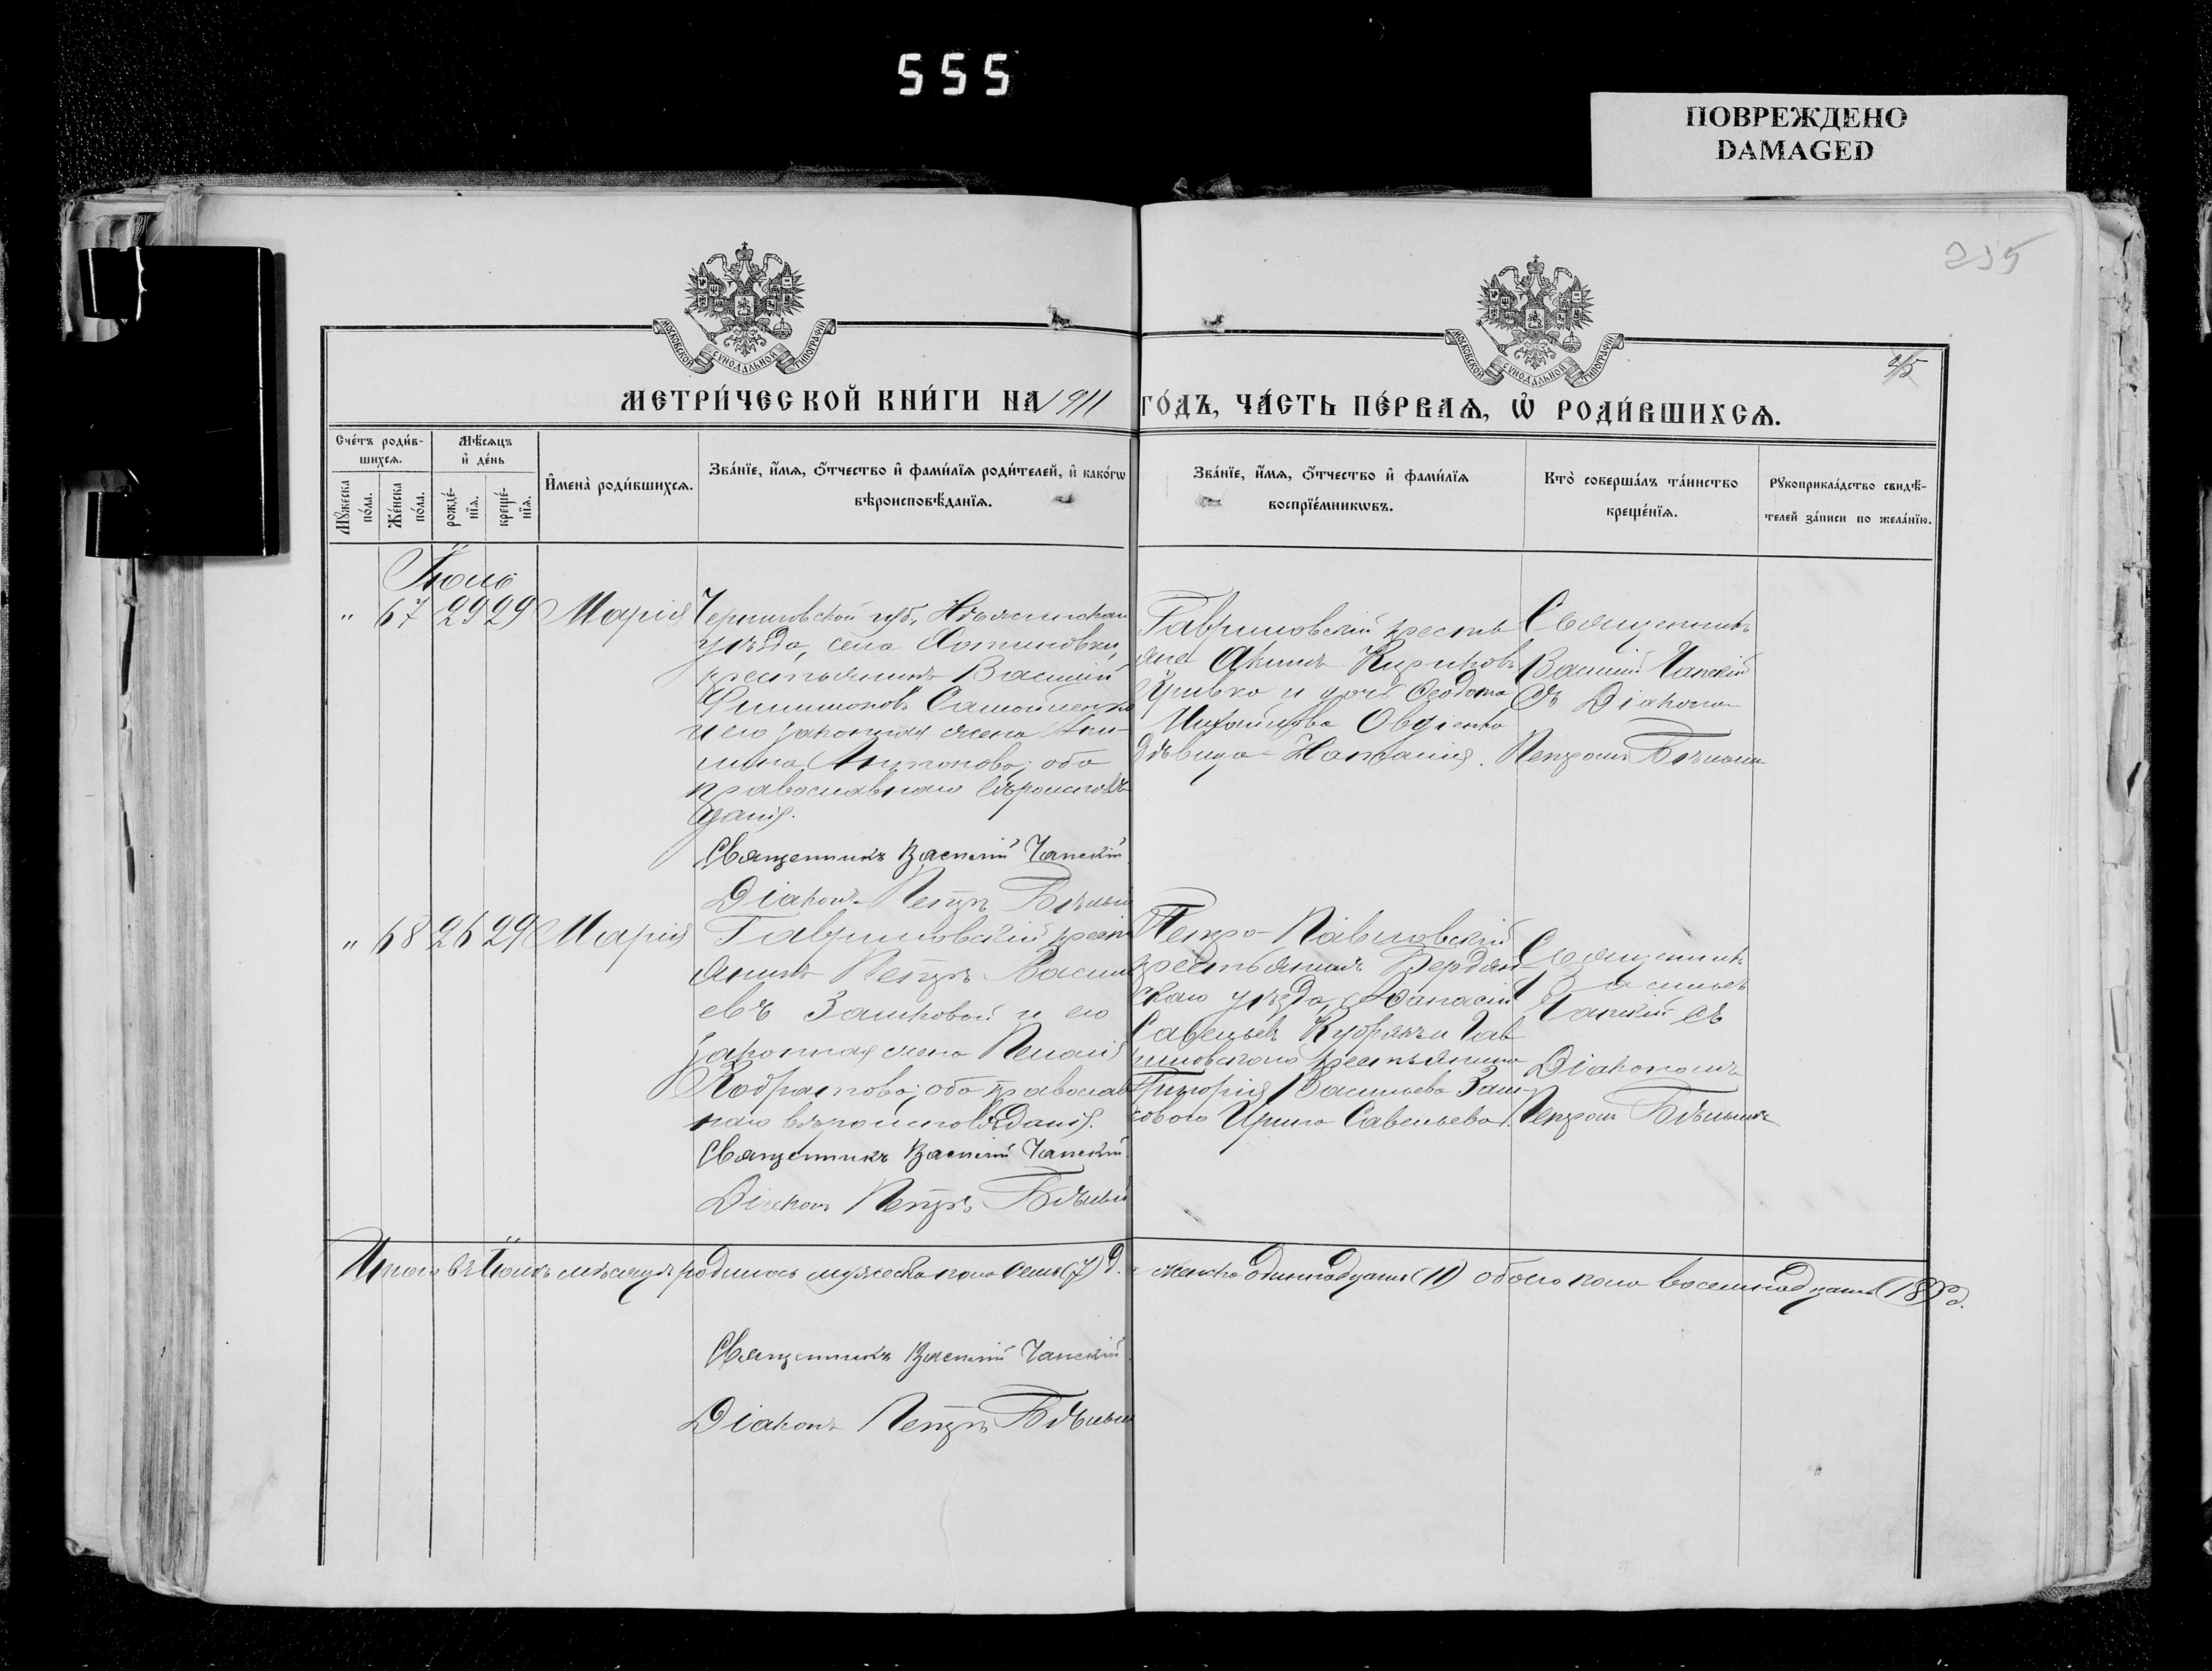 555
ПОВРЕЖДЕНО
DAMAGED
235
МОСКОВСКОЙ СѴНОДАЛЬНОЙ ТИПОГРАФІИ
МОСКОВСКОЙ СѴНОДАЛЬНОЙ ТИПОГРАФІИ
МЕТРИ́ЧЕСКОЙ КНИ́ГИ НА 1911 ГО́ДЪ, ЧА́СТЬ ПЕ́РВАѦ, Ѡ҆ РОДИ́ВШИХСѦ.
Сче́тъ роди́в-
шихсѧ.
Мꙋ́жеска по́ла.
Же́нска по́ла.
Мѣ́сѧцъ
и҆ де́нь
рожде́-
нїѧ.
креще́-
нїѧ.
И҆мена̀ роди́вшихсѧ.
Зва́нїе, и҆́мѧ, ѻ҆́тчество и҆ фами́лїѧ роди́телей, и҆ како́гѡ
вѣроисповѣ́данїѧ.
Зва́нїе, и҆́мѧ, ѻ҆́тчество и҆ фами́лїѧ
воспрїе́мникѡвъ.
Кто̀ соверша́лъ та́инство
креще́нїѧ.
Рꙋкоприкла́дство свидѣ́-
телей за́писи по жела́нїю.
Іюль
" 67 29 29 Марія
Черниговской губ, Нѣжинскаго
уѣзда, села
крестьянинъ Василій
Филимоновъ Самойленко
и его законная жена Аки-
лина Антонова; оба
православнаго вѣроисповѣ-
данія.
Священникъ Василій Чанскій
Діаконъ Петръ Бѣлый
Гавриловскій кресть
янин Акимъ Кириковъ
Кривко и дочь Ѳеодота
Михайлова Овдіенко
дѣвица Наталія.
Священникъ
Василій Чанскій
съ Діакономъ
Петромъ Бѣлымъ
" 68 26 29 Марія
Гавриловскій крест
янинъ Петръ Васили
евъ Зашковой и его
законная жена Пелагія
Кодратова; оба православ
наго вѣроисповѣданія.
Священникъ Василій Чанскій
Діаконъ Петръ Бѣлый
Петро-Павловскій
крестьянинъ Бердян-
скаго уѣзда, Аѳанасій
Савельев и Гав
риловскаго крестьянина
Григорія Васильева Заш-
кового Ирина Савельева.
Священникъ
Василій
Чанскій съ
Діакономъ
Петромъ Бѣлымъ
Итого въ Іюлѣ мѣсяцѣ родилось мужеска пола семь (7) д. женска одиннадцать (11) обоего пола восемнадцать (18) д.
Священникъ Василій Чанскій
Діаконъ Петръ Бѣлый